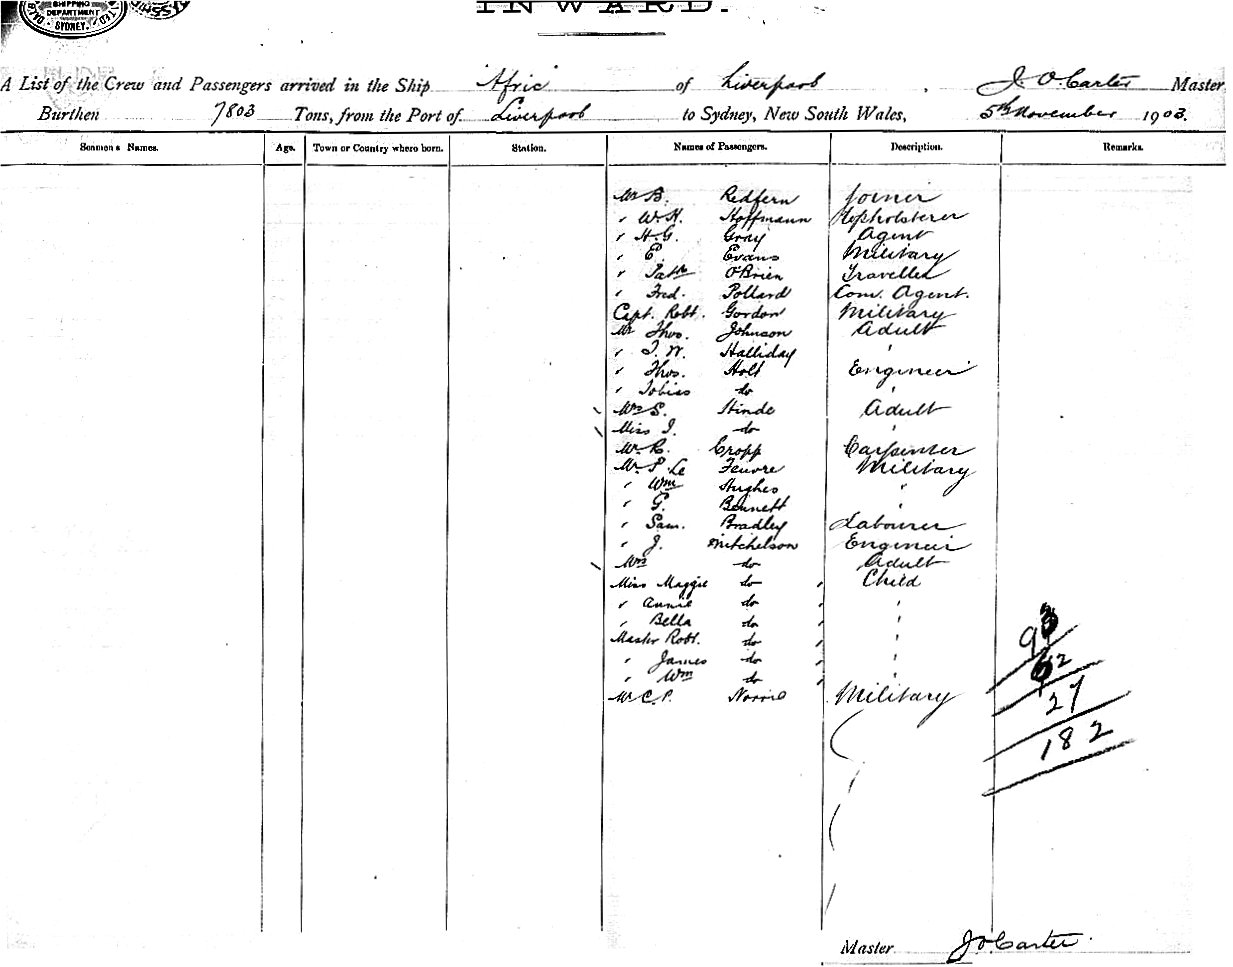 SHIPPING
DEPARTMENT
SYDNEY.
INWARD.
A List of the Crew and Passengers arrived in the Ship Afric of Liverpool, J. O. Carter Master
Burthen 7803 Tons, from the Port of Liverpool to Sydney, New South Wales, 5th November 1903.
Seamen's Names. Age. Town or Country where born. Station. Names of Passengers. Description. Remarks.
Mr B. Redfern Joiner
" W. H. Hoffmann Upholsterer
" H. G. Gray Agent
" E. Evans Military
" Patk O'Brien Traveller
" Fred. Pollard Com. Agent.
Capt. Robt. Gordon Military
Mr Thos. Johnson Adult
" J. W. Halliday "
" Thos. Holt Engineer
" Tobias do "
Mrs S. Hinde Adult
Miss I. do "
Mr R. Cropp Carpenter
Mr P. Le Feuvre Military
" Wm Hughes "
" G. Bennett "
" Sam. Bradley Labourer
" J. Mitchelson Engineer
Mrs do Adult
Miss Maggie do " Child
" Annie do " "
" Bella do " "
Master Robt. do " "
" James do " "
" Wm do " "
Mr C. P. Norrie Military
93
62
27
182
Master J O Carter.